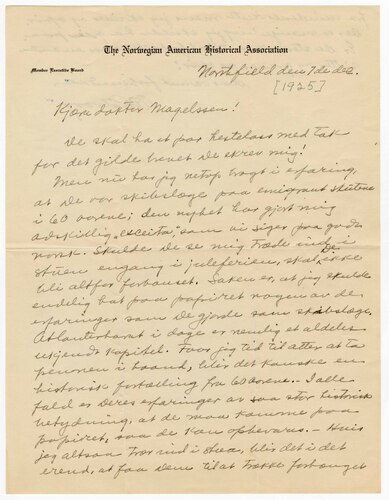 The Norwegian American Historical Association
Member Executive Board
Northfield den 7de dec.
[1925]
Kjære doktor Magelssen!
De skal ha et par hestelass med tak
for det gilde brevet De skrev mig!
Men nu har jeg netop bragt i erfaring,
at De var skibslæge paa emigrant skuterne
i 60 aarene; den nyhet har gjort mig
adskillig "exceita" som vi siger paa godt
norsk. Skulde De se mig træde ind i
stuen engang i juleferien, skal De ikke
bli altfor forbauset. Saken er, at jeg skulde
endelig hat paa papiret nogen av de
erfaringer som De gjorde som skibslæge.
Atlanterhavet i dage er nemlig et aldeles
ukjendt kapitel. Faar jeg tid til atter at ta
pennen i haand, blir det kanske en
historisk fortælling fra 60 aarene. I alle
fald er Deres erfaringer av saa stor historisk
betydning, at de maa komme paa
papiret, saa de kan opbevares. – Hvis
jeg altsaa tror ind i stua, blir det i det
erend, at faa Dem til at trække forhænget